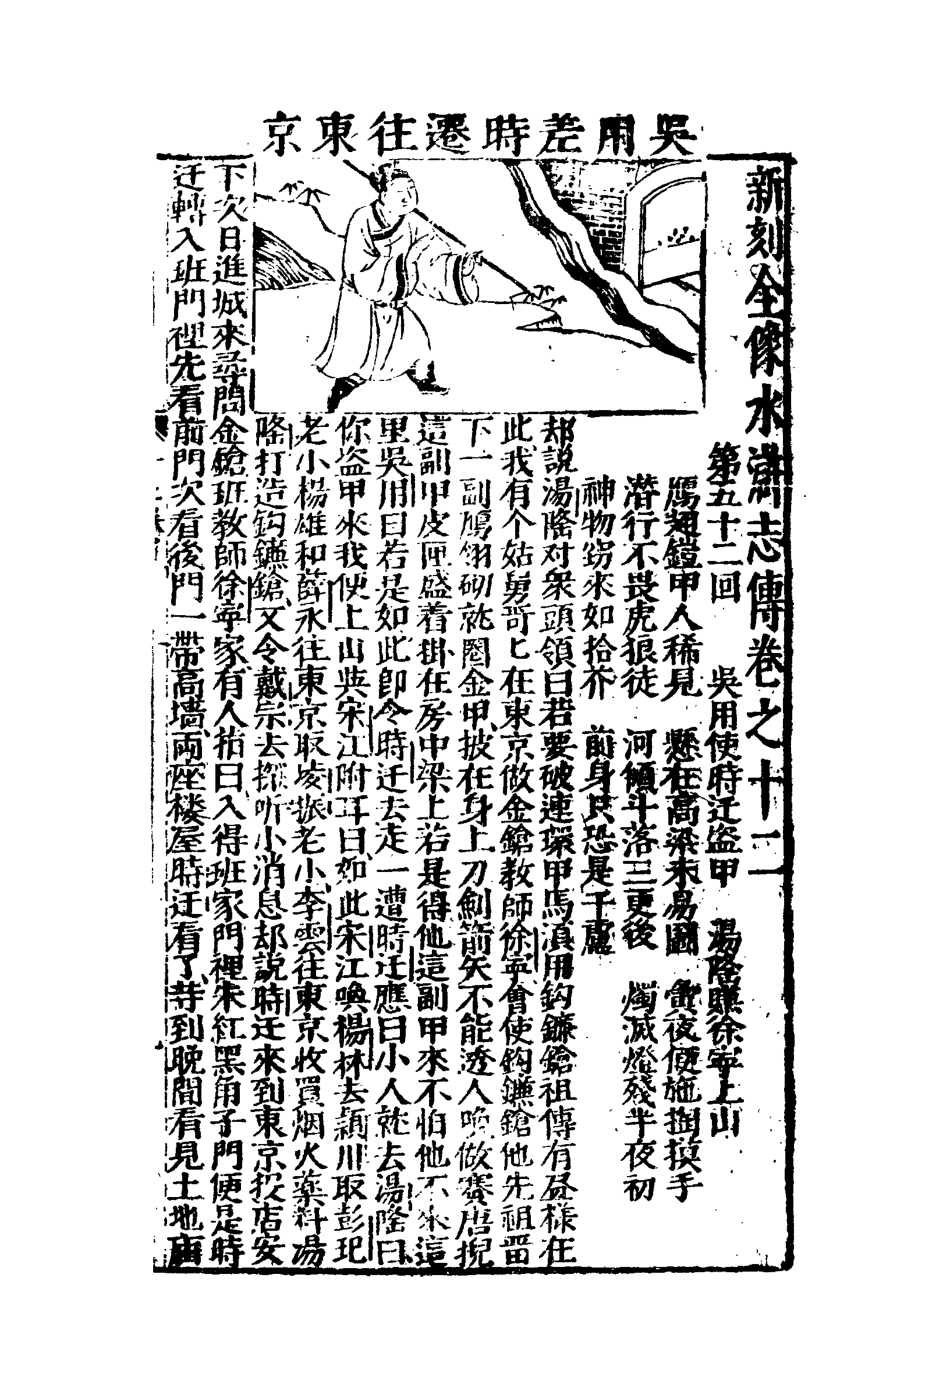 吳用差時遷往東京
新刻全像水滸志傳卷之十二
第五十二回　吳用使時迁盜甲　湯隆賺徐寜上山
鴈翅鎧甲人稀見　懸在高梁未易圖　夤夜便施掏摸手
潜行不畏虎狼徒　河傾斗落三更後　燭滅燈殘半夜初
神物窃來如拾芥　前身只恐是千驢
却說湯隆对衆頭領曰若要破連環甲馬湏用鈎鐮鎗祖傳有昼樣在
此我有个姑舅哥匕在東京做金鎗教師徐寜會使鈎鐮鎗他先祖畱
下一副鴈翎砌就圈金甲披在身上刀劍箭矢不能透人喚做賽唐猊
這副甲皮匣盛着掛在房中梁上若是得他這副甲來不怕他不來這
里吳用曰若是如此即令時迁去走一遭時迁應曰小人就去湯隆曰
你盜甲來我便上山央宋江附耳曰如此宋江喚楊林去潁川取彭玘
老小楊雄和薛永往東京取凌振老小李雲往東京收買烟火藥料湯
隆打造鈎鐮鎗又令戴宗去探听小消息却說時迁來到東京投店安
下次日進城來尋問金鎗班教師徐寜家有人指曰入得班家門裡朱紅黑角子門便是時
迁轉入班門裡先看前門次看後門一帶高墻兩座楼屋時迁看了等到晚間看見土地庙